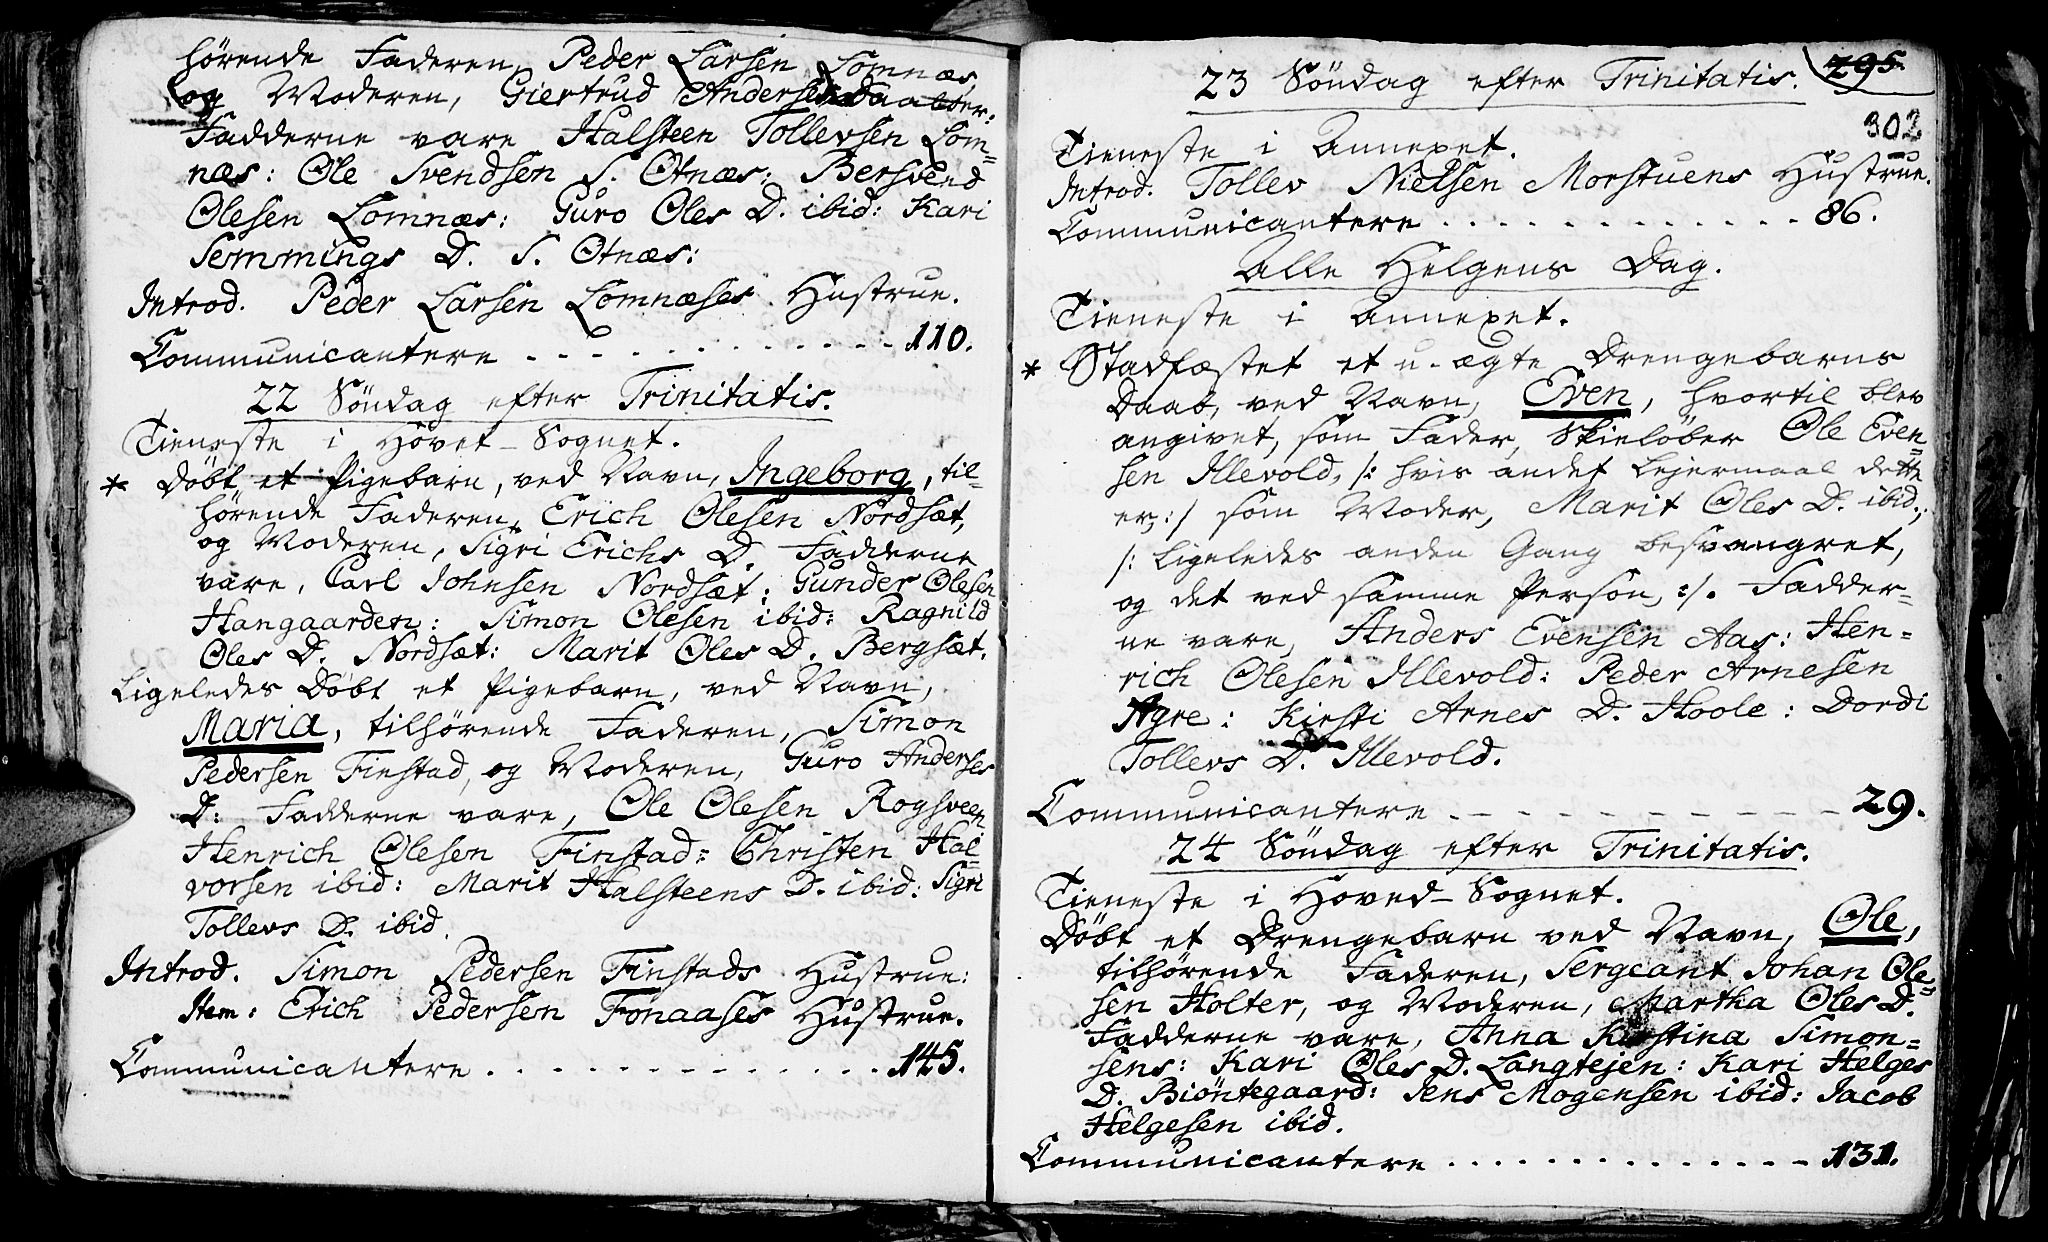 hörende Faderen, Peder Larsen Lomnæs,
og Moderen, Giertrud Andersdaatter.
Fadderne vare Halsteen Tollevsen Lom=
næs: Ole Svendsen S. Otnæs: Bersvend
Olesen Lomnæs: Guro Oles D. ibid: Kari
Semmings D. S. Otnæs:
Introd. Peder Larsen Lomnæses Hustrue.
Communicantere . . . . . . . . . . . . 110.
22 Söndag efter Trinitatis.
Tieneste i Hovet-Sognet.
* Döbt et Pigebarn, ved Navn, Ingeborg, til-
hörende Faderen, Erich Olesen Nordsæt,
og Moderen, Sigri Erichs D. Fadderne
vare, Carl Johnsen Nordsæt: Gunder Olesen
Hangaarden: Simon Olesen ibid: Ragnild
Oles D. Nordsæt: Marit Oles D. Bergsæt.
Ligeledes Döbt et Pigebarn, ved Navn,
Maria, tilhörende Faderen, Simon
Pedersen Finstad, og Moderen, Guro Anderses
D: Fadderne vare, Ole Olesen Rogsveen
Henrich Olesen Finstad: Christen Hal=
vorsen ibid: Marit Halsteens D. ibid: Sigri
Tollevs D. ibid.
Introd. Simon Pedersen Finstads Hustrue:
Item: Erich Pedersen Fonaases Hustrue.
Communicantere . . . . . . . . . . . . 145.
295
302
23 Söndag efter Trinitatis.
Tieneste i Annexet.
Introd. Tollev Nielsen Morstuens Hustrue.
Communicantere . . . . . . . . . . . . 86.
Alle Helgens Dag.
Tieneste i Annexet.
* Stadfæstet et u-ægte Drengebarns
Daab, ved Navn, Even, hvortil blev
angivet, som Fader, Skielöber Ole Even=
sen Illevold, /: hvis andet Lejermaal dette
er, :/ som Moder, Marit Oles D. ibid.,
/: ligeledes anden Gang besvangret,
og det ved samme Person, :/. Fadder=
ne vare, Anders Evensen Aas: Hen=
rich Olesen Illevold: Peder Arnesen
Agre: Kirsti Arnes D. Hoole: Dordi
Tollevs D. Illevold.
Communicantere - - - - - - - - - - - - 29.
24 Söndag efter Trinitatis.
Tieneste i Hoved-Sognet.
Döbt et Drengebarn ved Navn, Ole,
tilhörende Faderen, Sergeant Johan Ole=
sen Holter, og Moderen, Martha Oles D.
Fadderne vare, Anna Kirstina Simon=
sens: Kari Oles D. Langtejen: Kari Helges
D. Biöntegaard: Jens Mogensen ibid: Jacob
Helgesen ibid.
Communicantere . . . . . . . . . . . . 131.